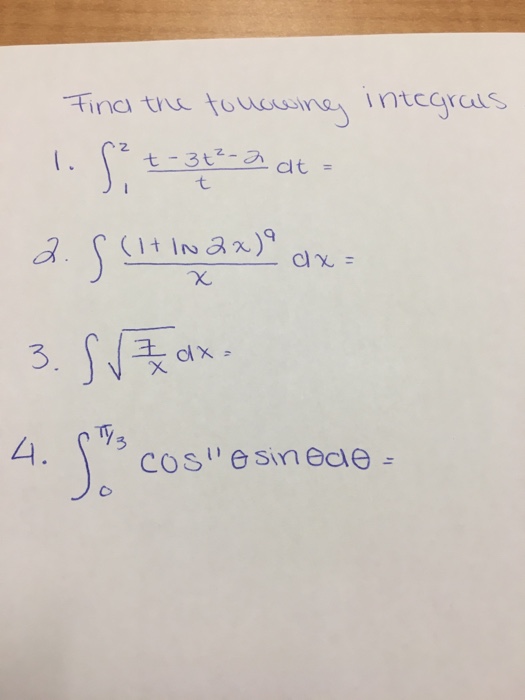 Find the following integrals
1. ∫₁² (t - 3t² - 2)/t dt =
2. ∫ (1 + ln 2x)⁹/x dx =
3. ∫ √(7/x) dx =
4. ∫₀^(π/3) cos¹¹ θ sin θ dθ =